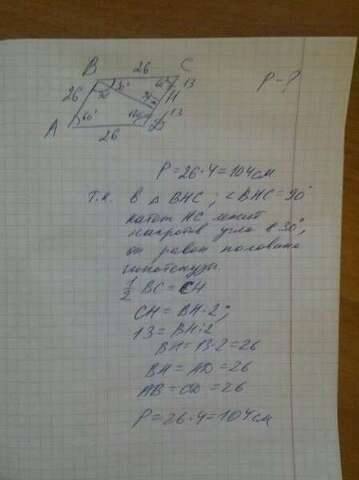 B 26 C
P-?
26 30° 60° 13
H
13
A 60° 26 D
P=26·4=104см
т.к. в △ BHC; ∠BHC=90°
катет HC лежит
напротив угла в 30°,
он равен половине
гипотенузы.
1/2 BC = CH
CH = BH·2;
13 = BH·2
BH = 13·2 = 26
BH = AD = 26
AB = CD = 26
P=26·4=104см